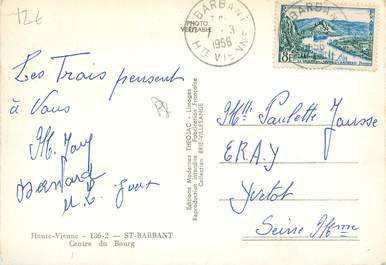 12€
PHOTO
VERITABLE
ST BARBANT
3
1956
HTE VIENNE
8F
Les Trois pensent
à Vous
Bernard
Editions Modernes THEOJAC - Limoges
Reproduction Interdite Fabrication Française
Collection BRIE-VILLESANGE
Melle Paulette Jousse
E.R.A.Y
Yvetot
Seine Infme
Haute-Vienne - 136-2 - ST-BARBANT
Centre du Bourg